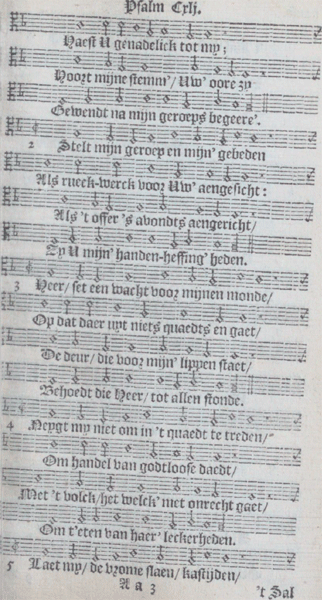 Psalm Cxlj.
Haest U genadelick tot my;
Hoort mijne stemm'/ Uw' oore zy
Gewendt na mijn geroeps begeere'.
2 Stelt mijn geroep en mijn' gebeden
Als rueck-werck voor Uw' aengesicht:
Als 't offer 's avondts aengericht/
Zy U mijn' handen-heffing' heden.
3 Heer/ set een wacht voor mijnen monde/
Op dat daer uyt niets quaedts en gaet/
De deur/ die voor mijn' lippen staet/
Behoedt die Heer/ tot allen stonde.
4 Neygt my niet om in 't quaedt te treden/
Om handel van godtloose daedt/
Met 't volck/ het welck' met onrecht gaet/
Om t'eten van haer' leckerheden.
5 Laet my/ de vrome slaen/ kastijden/
A a 3 't Sal